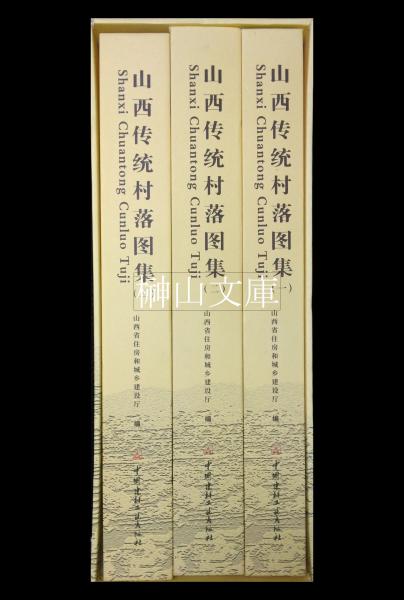 山西传统村落图集
Shanxi Chuantong Cunluo Tuji
山西省住房和城乡建设厅 编
中国建材工业出版社
山西传统村落图集(二)
Shanxi Chuantong Cunluo Tuji
山西省住房和城乡建设厅 编
中国建材工业出版社
山西传统村落图集(一)
Shanxi Chuantong Cunluo Tuji
山西省住房和城乡建设厅 编
中国建材工业出版社
榊山文庫